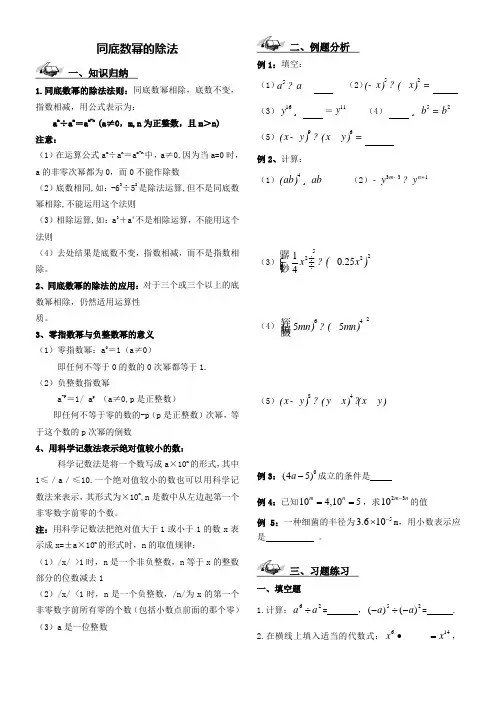 同底数幂的除法
一、知识归纳
1.同底数幂的除法法则:同底数幂相除,底数不变,
指数相减,用公式表示为:
aᵐ÷aⁿ=aᵐ⁻ⁿ (a≠0,m,n为正整数,且m>n)
注意:
(1)在运算公式aᵐ÷aⁿ=aᵐ⁻ⁿ中,a≠0,因为当a=0时,
a的非零次幂都为0,而0不能作除数
(2)底数相同,如:-6³÷5²是除法运算,但不是同底数
幂相除,不能运用这个法则
(3)相除运算,如:a³+a²不是相除运算,不能用这个
法则
(4)去处结果是底数不变,指数相减,而不是指数相
除。
2、同底数幂的除法的应用:对于三个或三个以上的底
数幂相除,仍然适用运算性
质。
3、零指数幂与负整数幂的意义
(1)零指数幂:a⁰=1(a≠0)
即任何不等于0的数的0次幂都等于1.
(2)负整数指数幂
a⁻ᵖ=1/ aᵖ (a≠0,p是正整数)
即任何不等于零的数的-p(p是正整数)次幂,等
于这个数的p次幂的倒数
4、用科学记数法表示绝对值较小的数:
科学记数法是将一个数写成a×10ⁿ的形式,其中
1≤/a/≤10.一个绝对值较小的数也可以用科学记
数法来表示,其形式为×10ⁿ,n是数中从左边起第一个
非零数字前零的个数。
注:用科学记数法把绝对值大于1或小于1的数x表
示成x=±a×10ⁿ的形式时,n的取值规律:
(1)/x/ >1时,n是一个非负整数,n等于x的整数
部分的位数减去1
(2)/x/ <1时,n是一个负整数,/n/为x的第一个
非零数字前所有零的个数(包括小数点前面的那个零)
(3)a是一位整数
二、例题分析
例1:填空:
(1)a⁵ ? a (2)(- x)⁵ ? ( x)² =
(3) y¹⁶ ¸ =y¹¹ (4) ¸ b⁵ = b²
(5)(x- y)⁹ ? (x y)⁶ =
例2、计算:
(1)(ab)⁴ ¸ ab (2)- y³ᵐ⁻³ ? yⁿ⁺¹
(4) 5mn)⁶ ? ( 5mn)⁴ ²
(5)(x- y)⁸ ? (y x)⁴ ?(x y)
例3:(4a-5)⁰成立的条件是
例4:已知10ᵐ=4,10ⁿ=5,求10²ᵐ⁻³ⁿ的值
例5:一种细菌的半径为3.6×10⁻⁵m,用小数表示应
是 。
三、习题练习
一、填空题
1.计算:a⁶÷a²= ,(-a)⁵÷(-a)²= .
2.在横线上填入适当的代数式:x⁶•______=x¹⁴,